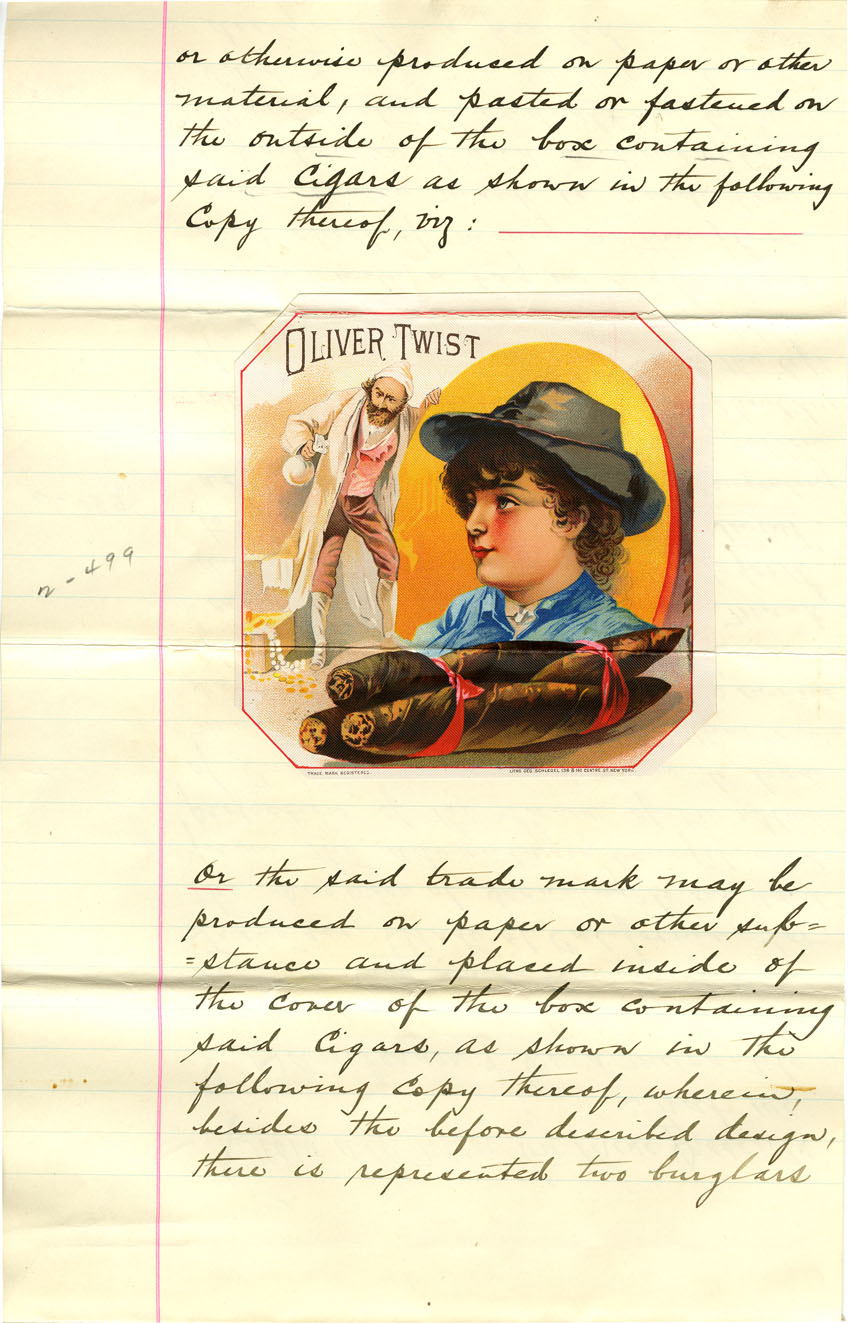 or otherwise produced on paper or other
material, and pasted or fastened on
the outside of the box containing
said Cigars as shown in the following
Copy thereof, viz:
OLIVER TWIST
n-499
TRADE MARK REGISTERED.
LITHO. GEO. SCHLEGEL, 138 & 140 CENTRE ST. NEW YORK.
Or the said trade mark may be
produced on paper or other sub=
=stance and placed inside of
the cover of the box containing
said Cigars, as shown in the
following Copy thereof, wherein,
besides the before described design,
there is represented two burglars